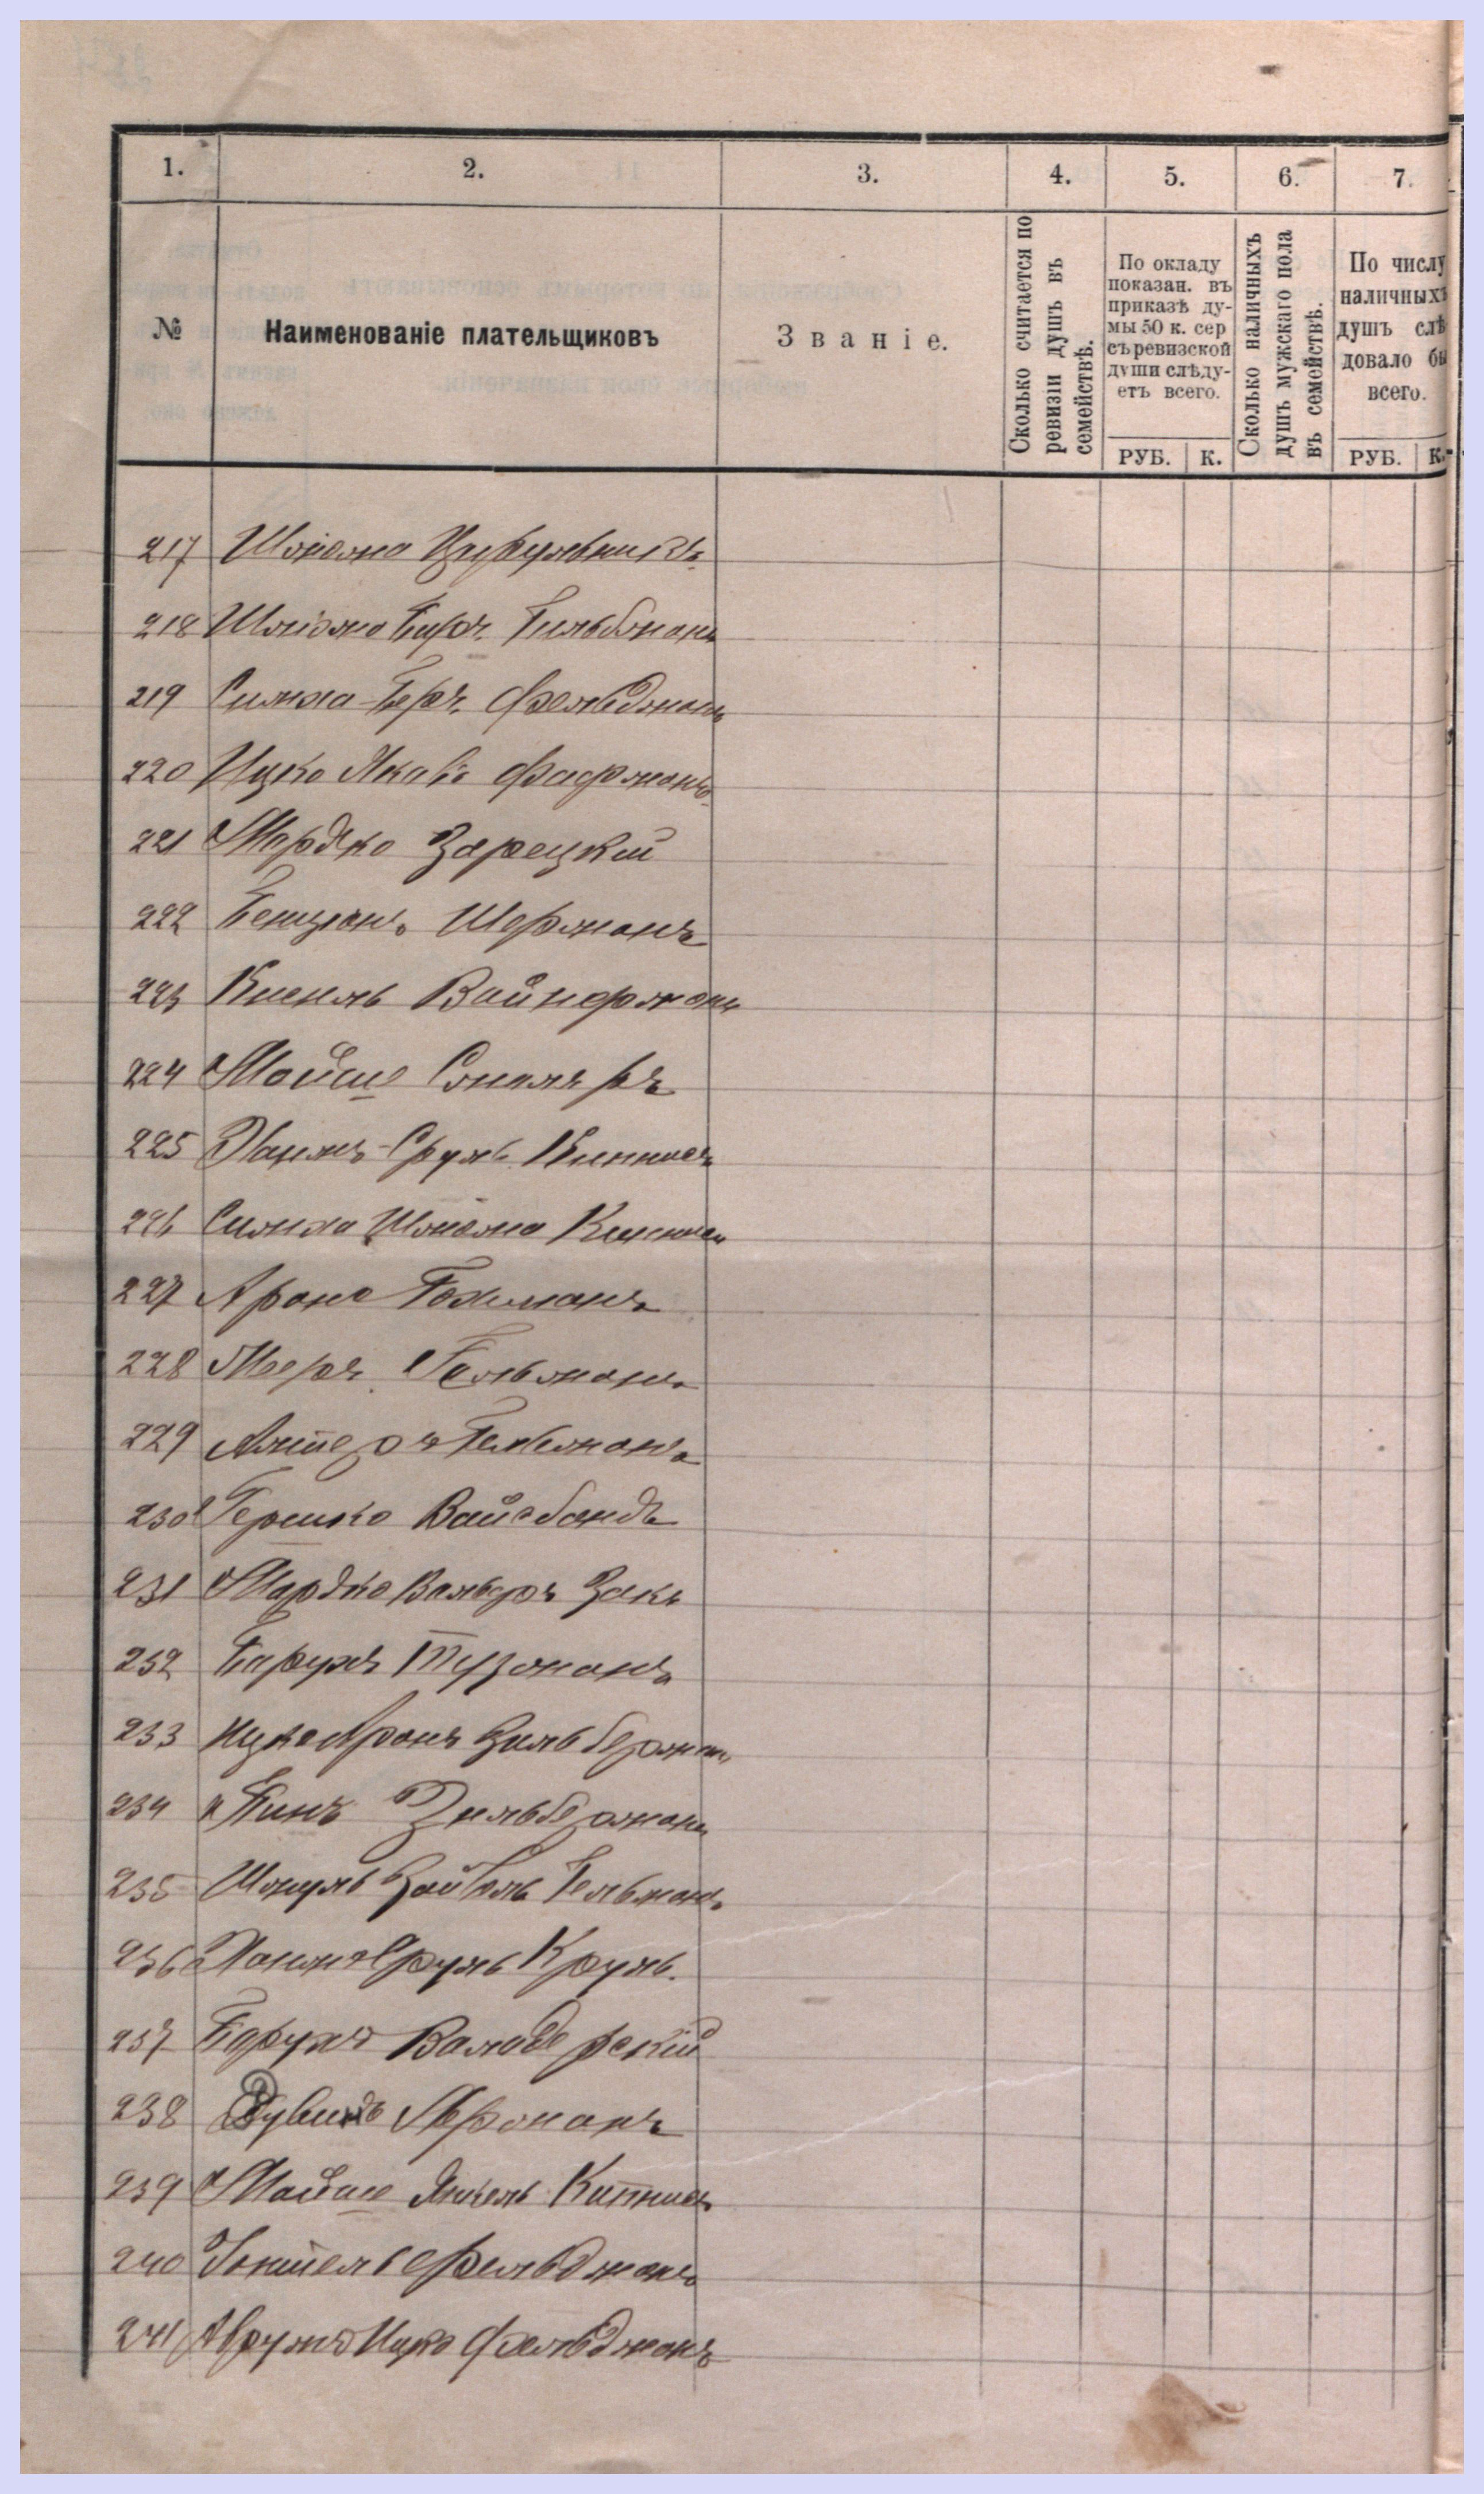 1. 2. 3. 4. 5. 6. 7.
№
Наименованіе плательщиковъ
Званіе.
Сколько считается по
ревизіи душъ въ
семействѣ.
По окладу
показан. въ
приказѣ ду-
мы 50 к. сер
съ ревизской
души слѣду-
етъ всего.
РУБ. К.
Сколько наличныхъ
душъ мужскаго пола
въ семействѣ.
По числу
наличныхъ
душъ слѣ
довало бы
всего.
РУБ. К.
217 Шліома Цирульникъ
218 Шліома Беръ
219 Симха Беръ Фельдманъ
220 Ицко Якавъ
221 Мордко Зарецкій
222 Бенціонъ Шерманъ
223 Кисиль
224 Мойше Смоляръ
225 Хаимъ-Сруль Кипнисъ
226 Симха Шліома Кипнисъ
227 Аронъ
228 Меръ Гельманъ
229 Алтеръ Гельманъ
230 Гершко Вайсбандъ
231 Мордко Вольфъ Закъ
232 Барухъ Тузманъ
233 Ицко Аронъ Зильберманъ
234 Зильберманъ
235 Шмуль Зайвель Гельманъ
236 Хаимъ Сруль Круль.
237 Барухъ
238 Дувидъ
239 Мойше Янкель Кипнисъ
240 Фельдманъ
241 Аврумъ Ицко Фельдманъ